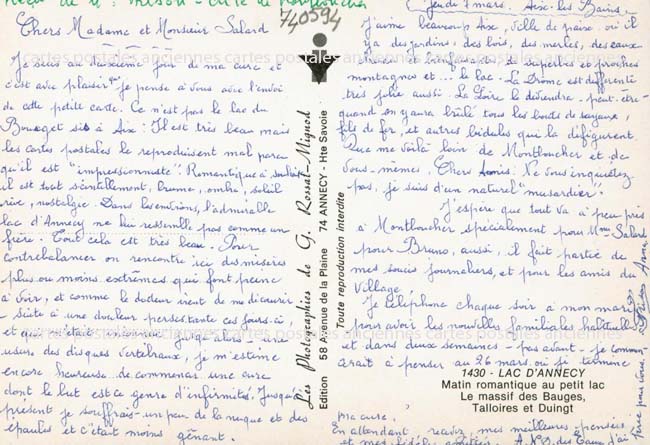 740594
Jeudi 7 mars. Aix-les-Bains.
Chers Madame et Monsieur Salard
Je suis au deuxième jour de ma cure et
c'est avec plaisir que je pense à vous avec l'envoi
de cette petite carte. Ce n'est pas le lac du
Bourget sis à Aix. Il est très beau mais
les cartes postales le reproduisent mal parce
qu'il est "impressionniste". Romantique à souhait
il est tout scintillement, brume, ombre, soleil
rive, nostalgie. Dans les environs, l'admirable
lac d'Annecy ne lui ressemble pas comme un
frère. Tout cela est très beau. Pour
contrebalancer on rencontre ici des misères
plus ou moins extrêmes qui font peine
à voir, et comme le docteur vient de me découvrir
suite à une douleur persistante ces jours-ci,
et que c'était
usure des disques vertébraux, je m'estime
encore heureuse de commencer une cure
dont le but est ce genre d'infirmités. Jusqu'à
présent je souffrais un peu de la nuque et des
épaules et c'était moins gênant.
J'aime beaucoup Aix, ville de paix où il
y a des jardins, des bois, des merles, des eaux
de superbes et proches
montagnes et... le lac. La Drôme est différente
très jolie aussi. La Loire le deviendra peut-être
quand on aura brûlé tous les bouts de tuyaux,
fils de fer, et autres bidules qui la défigurent
Que me voilà loin de Montloucher et de
vous-mêmes, Chers Amis. Ne vous inquiétez
pas, je suis d'un naturel "musardier".
J'espère que tout va à peu près
à Montloucher spécialement pour Mme Salard
pour Bruno, aussi, il fait partie de
mes soucis journaliers, et pour les amis du
Village.
Je téléphone chaque soir à mon mari
pour avoir les nouvelles familiales habituelles
et dans deux semaines - pas avant - je commen
cerai à penser au 26 mars où se termine
ma cure.
En attendant recevez mes meilleures pensées
Les Photographies de G. Rossat-Mignod
Edition 58 Avenue de la Plaine 74 ANNECY - Hte Savoie
Toute reproduction interdite
1430 - LAC D'ANNECY
Matin romantique au petit lac
Le massif des Bauges,
Talloires et Duingt